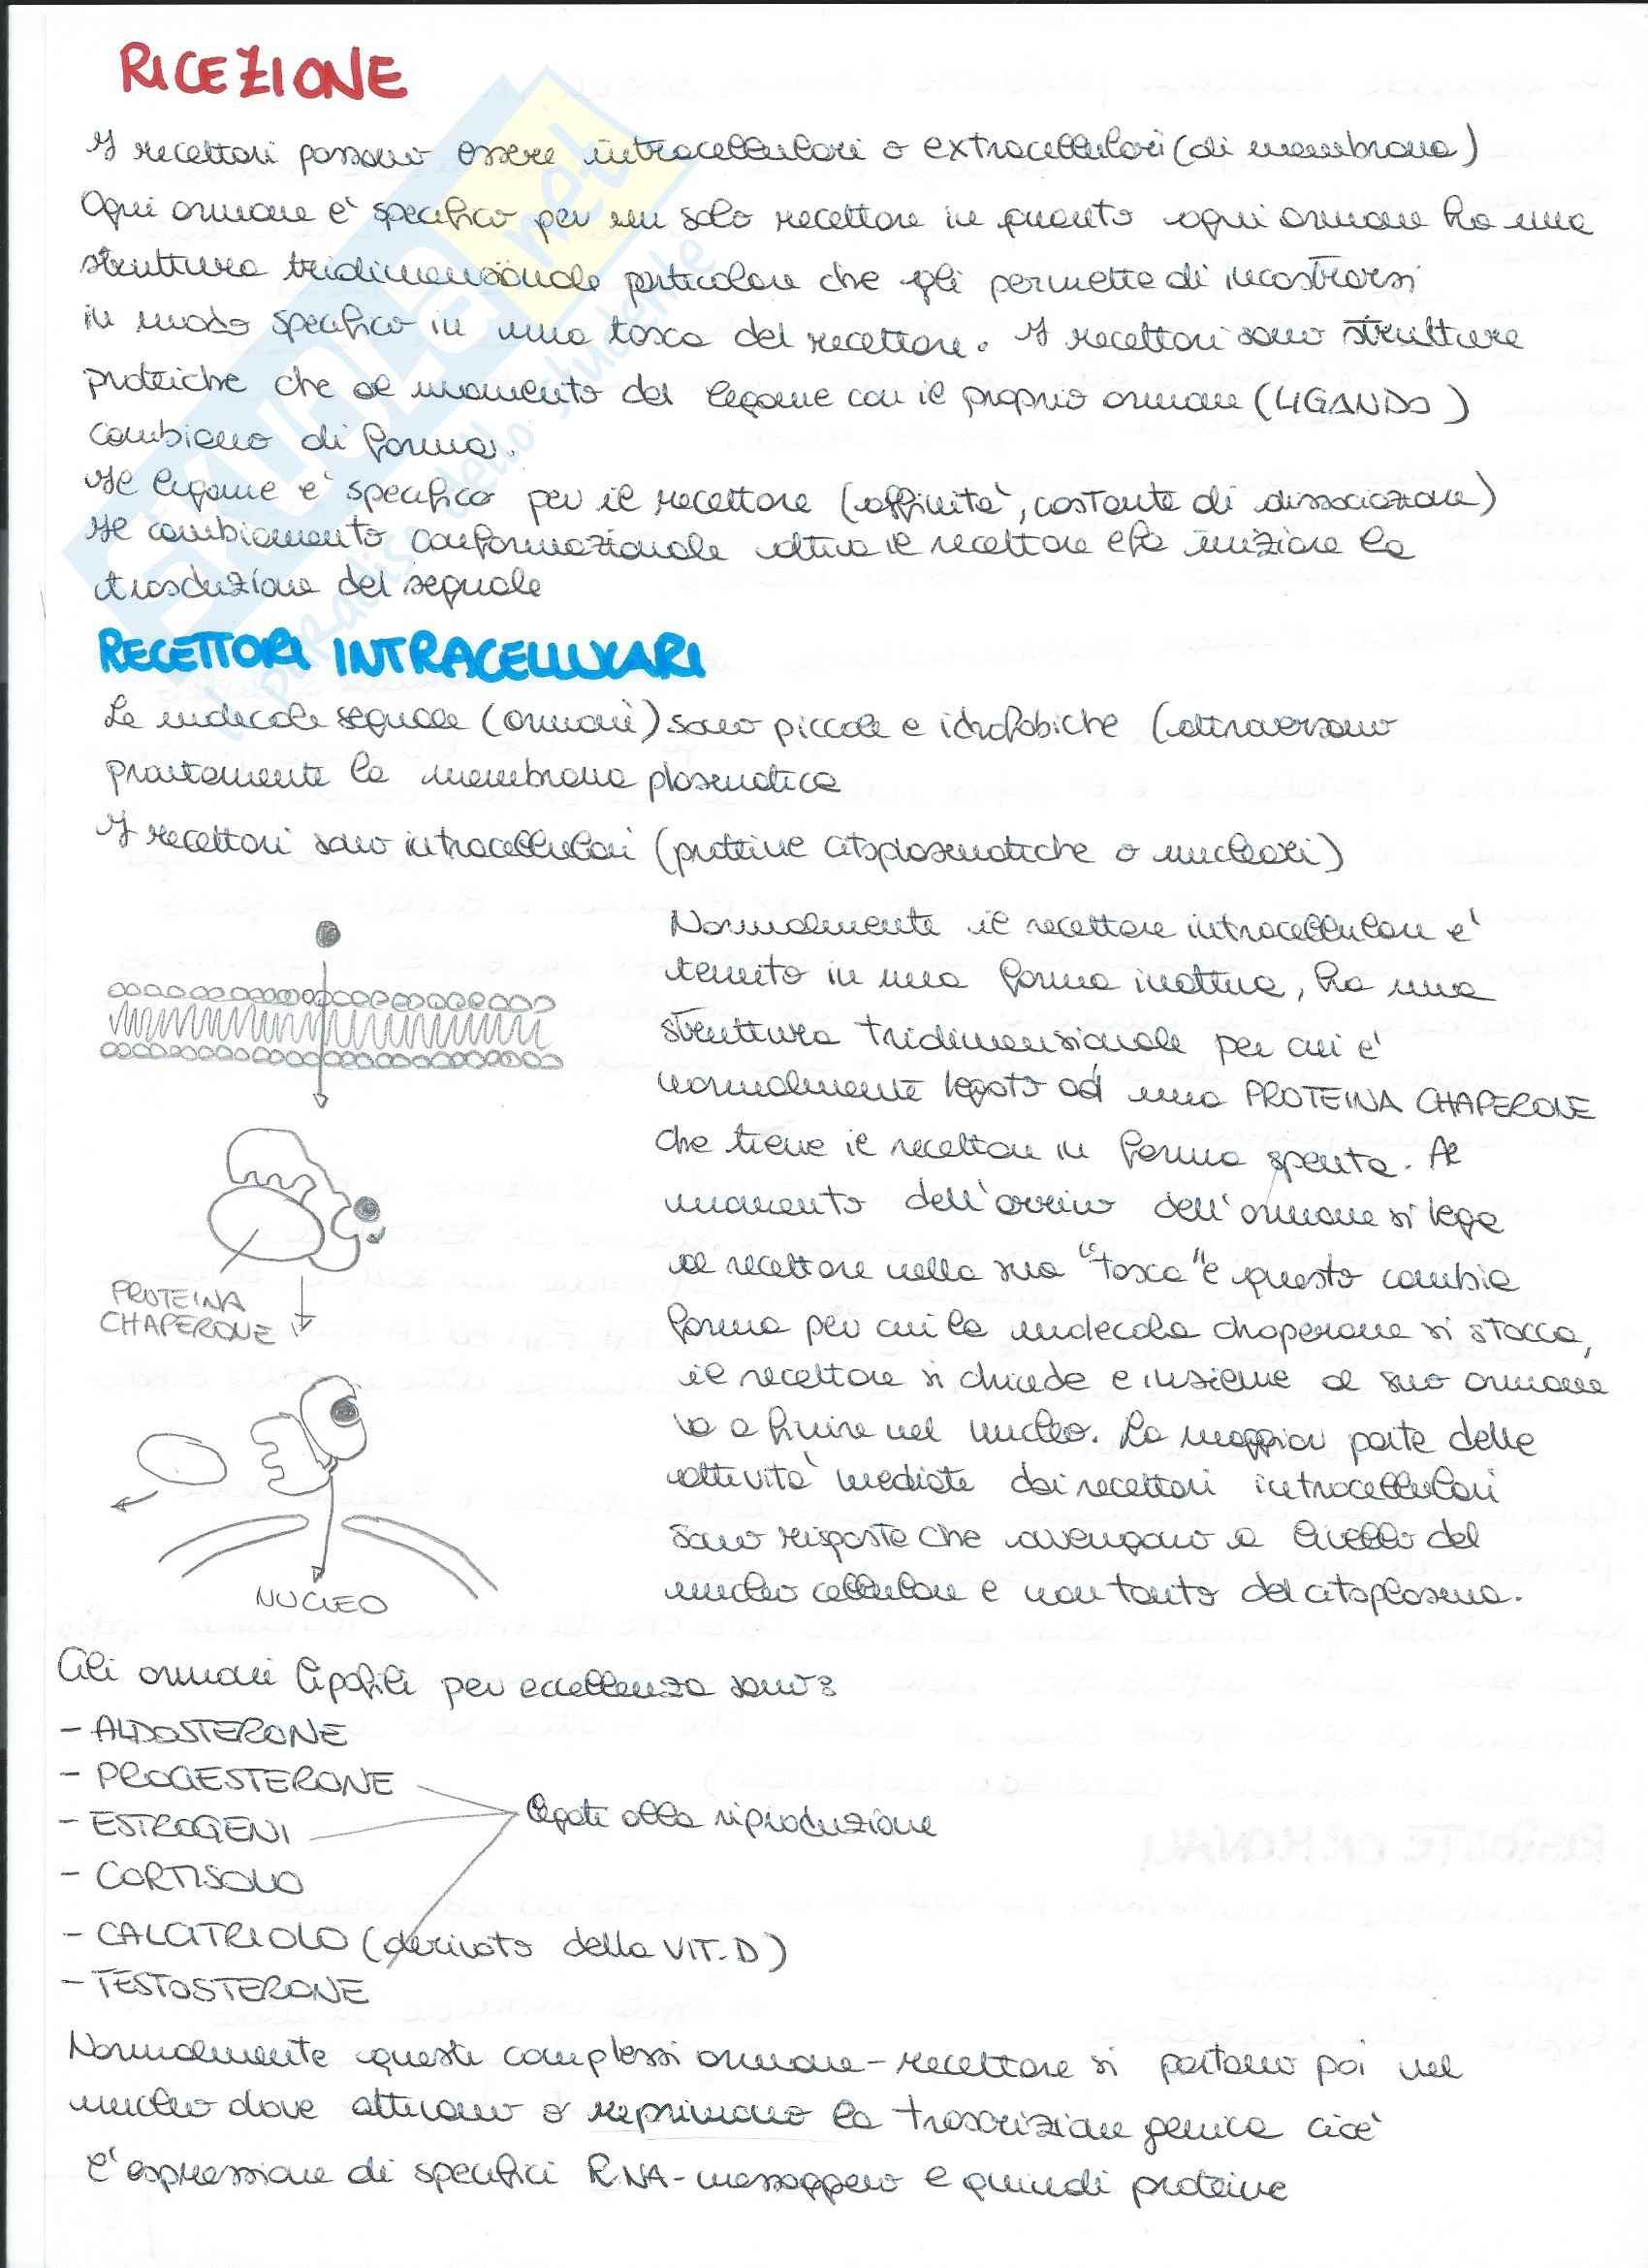 RICEZIONE
I recettori possono essere intracellulari o extracellulari (di membrana)
Ogni ormone e' specifico per un solo recettore in quanto ogni ormone ha una
struttura tridimensionale particolare che gli permette di incastrarsi
in modo specifico in una tasca del recettore. I recettori sono strutture
proteiche che al momento del legame con il proprio ormone (LIGANDO)
cambiano di forma.
Il legame e' specifico per il recettore (affinità, costante di dissociazione)
Il cambiamento conformazionale attiva il recettore e fa iniziare la
trasduzione del segnale
RECETTORI INTRACELLULARI
Le molecole segnale (ormoni) sono piccole e idrofobiche (attraversano
prontamente la membrana plasmatica
I recettori sono intracellulari (proteine citoplasmatiche o nucleari)
Normalmente il recettore intracellulare e'
tenuto in una forma inattiva, ha una
struttura tridimensionale per cui e'
normalmente legato ad una PROTEINA CHAPERONE
che tiene il recettore in forma spenta. Al
momento dell'arrivo dell'ormone si lega
al recettore nella sua "tasca" e questo cambia
forma per cui la molecola chaperone si stacca,
il recettore si chiude e insieme al suo ormone
va a finire nel nucleo. La maggior parte delle
attività mediate dai recettori intracellulari
sono risposte che avvengono a livello del
nucleo cellulare e non tanto del citoplasma.
PROTEINA
CHAPERONE
NUCLEO
Gli ormoni lipofili per eccellenza sono:
- ALDOSTERONE
- PROGESTERONE
- ESTROGENI
legati alla riproduzione
- CORTISOLO
- CALCITRIOLO (derivato della VIT. D)
- TESTOSTERONE
Normalmente questi complessi ormone-recettore si portano poi nel
nucleo dove attivano o reprimono la trascrizione genica cioè
l'espressione di specifici RNA-messaggero e quindi proteine